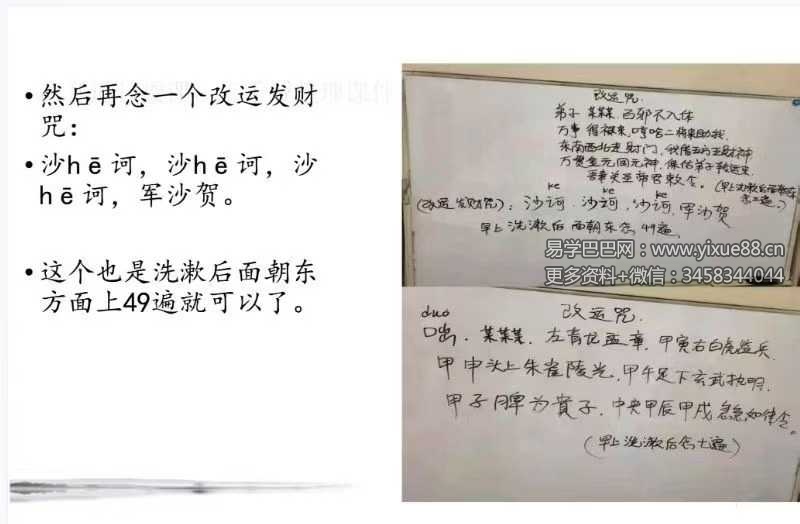 • 然后再念一个改运发财
咒：
• 沙hē诃，沙hē诃，沙
hē诃，军沙贺。
• 这个也是洗漱后面朝东
方面上49遍就可以了。
改运咒.
弟子 某某某, 百邪不入体
万事得福来, 哼哈二将来助我.
东南西北走财门, 我居五方五财神
万贯金元回元神, 保佑弟子转运来
吾奉关圣帝君敕令。
ke ke ke
(改运发财咒): 沙诃. 沙诃, 沙诃, 军沙贺
早上洗漱后 面朝东念49遍
易学巴巴网：www.yixue88.cn
更多资料+微信：3458344044
duo 改运咒.
咄. 某某某. 左青龙孟章, 甲寅右白虎监兵
甲申头上朱雀陵光, 甲午足下玄武执明.
甲子月脾为贵子. 中央甲辰甲戌 急急如律令。
(早上洗漱后念七遍)